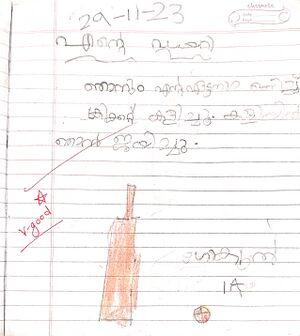 29-11-23
എന്റെ ഡയറി
ഞാനും എന്റെ ഒന്നിച്ച്
ക്രിക്കറ്റ് കളിച്ചു. കളിയിൽ
ഞാൻ ജയിച്ചു.
V-good
1A